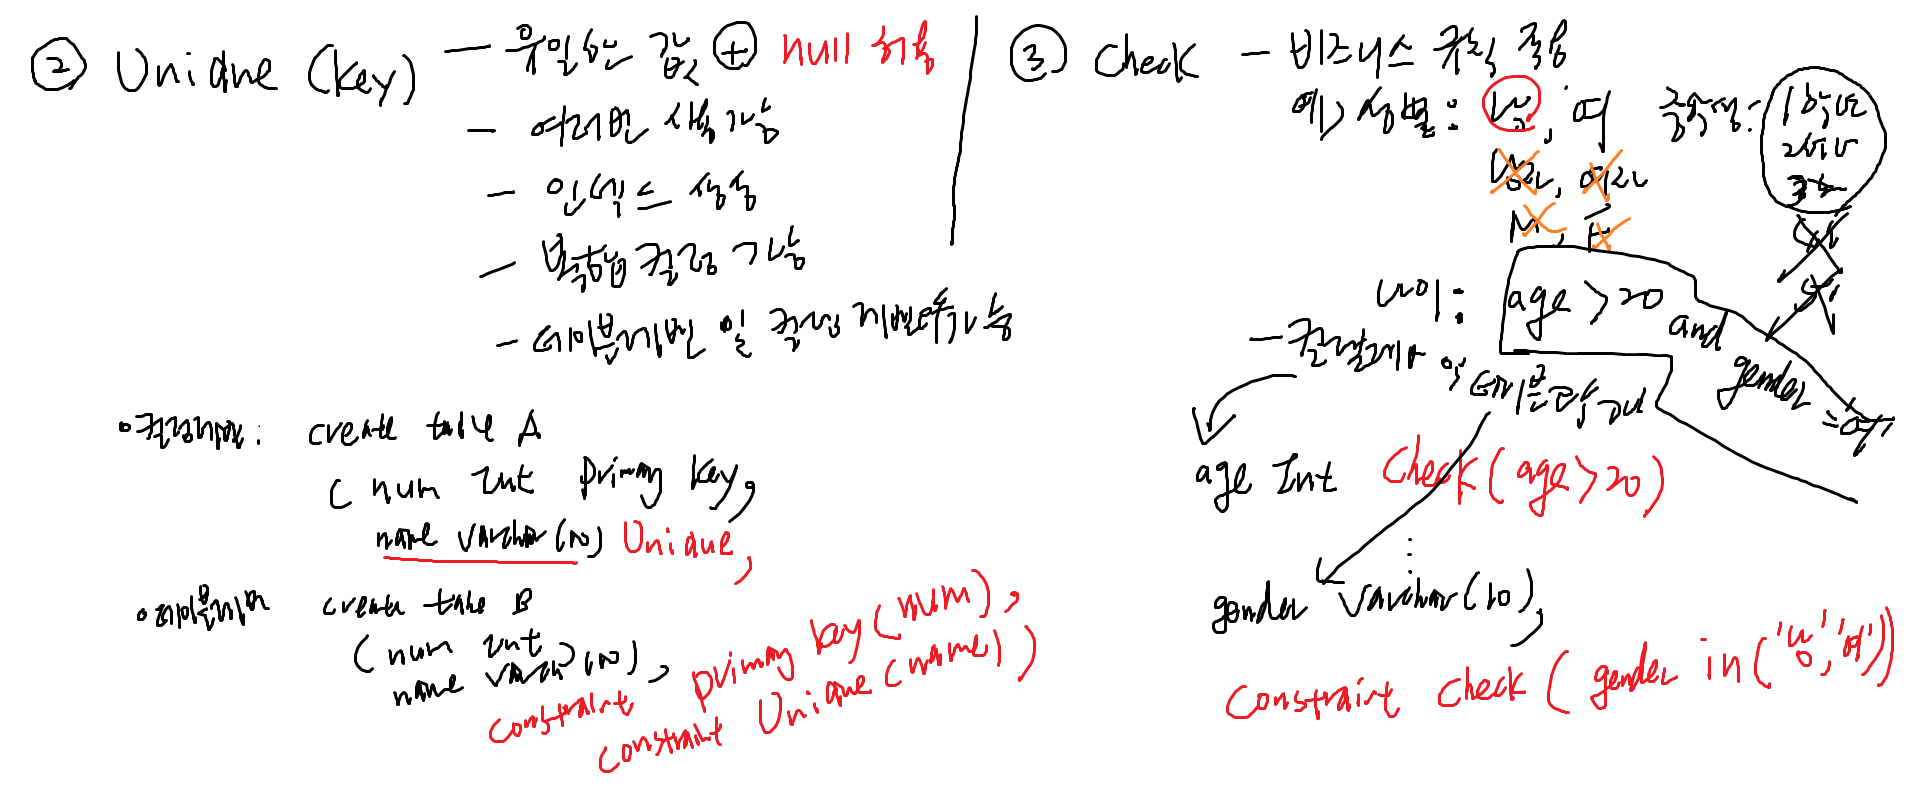 ② Unique (key) - 유일한 값 ⊕ null 허용
- 여러번 사용가능
- 인덱스 생성
- 복합컬럼 가능
- 테이블레벨 및 컬럼 레벨 가능
• 컬럼레벨: create table A
( num Int primary key,
name varchar(10) Unique,
• 테이블레벨 create table B
( num Int
name varchar(10),
constraint primary key(num),
constraint Unique(name))
③ Check - 비즈니스 규칙 적용
예) 성별: 남, 여
남자, 여자
M, F
1학년
2학년
나이: age > 20 and gender = 여
- 컬럼레벨 및 테이블
age Int Check(age>20)
gender varchar(10),
constraint check( gender in('남','여'))